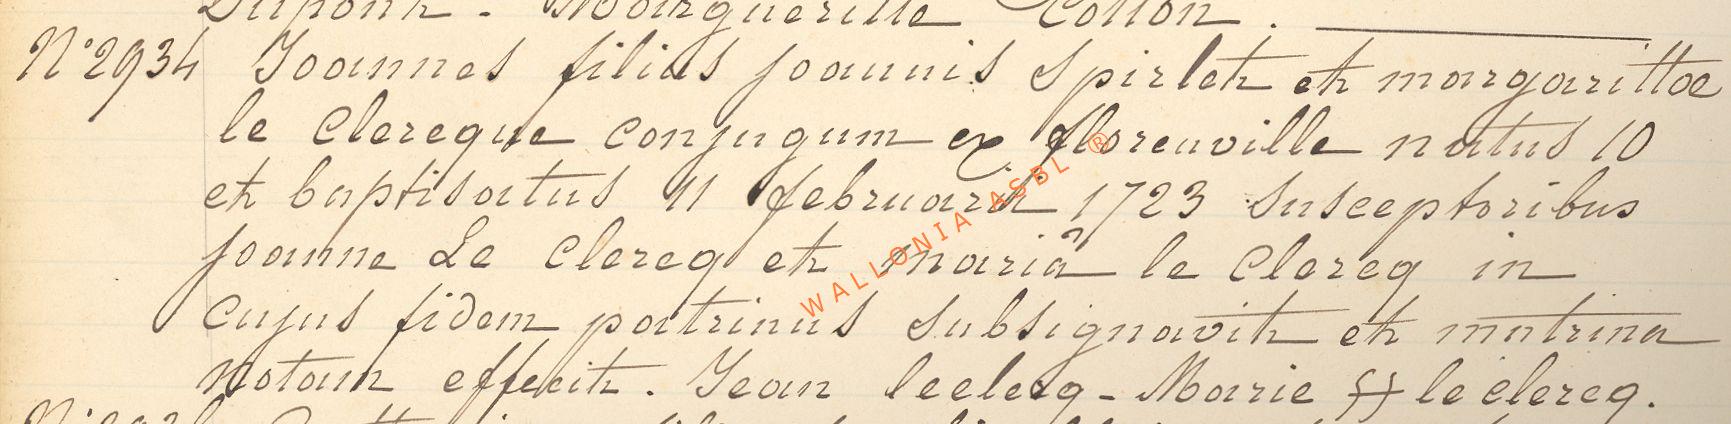 Dupont - Margueritte Collon.
N° 2934 Joannes filius joannis Spirlet et margarittae
le Clercque conjugum ex florenville natus 10
et baptisatus 11 februarii 1723 Susceptoribus
joanne Le Clercq et mariâ le Clercq in
cujus fidem patrinus subsignavit et matrina
notam effecit. Jean leclerq - Marie le clercq.
WALLONIA ASBL ®